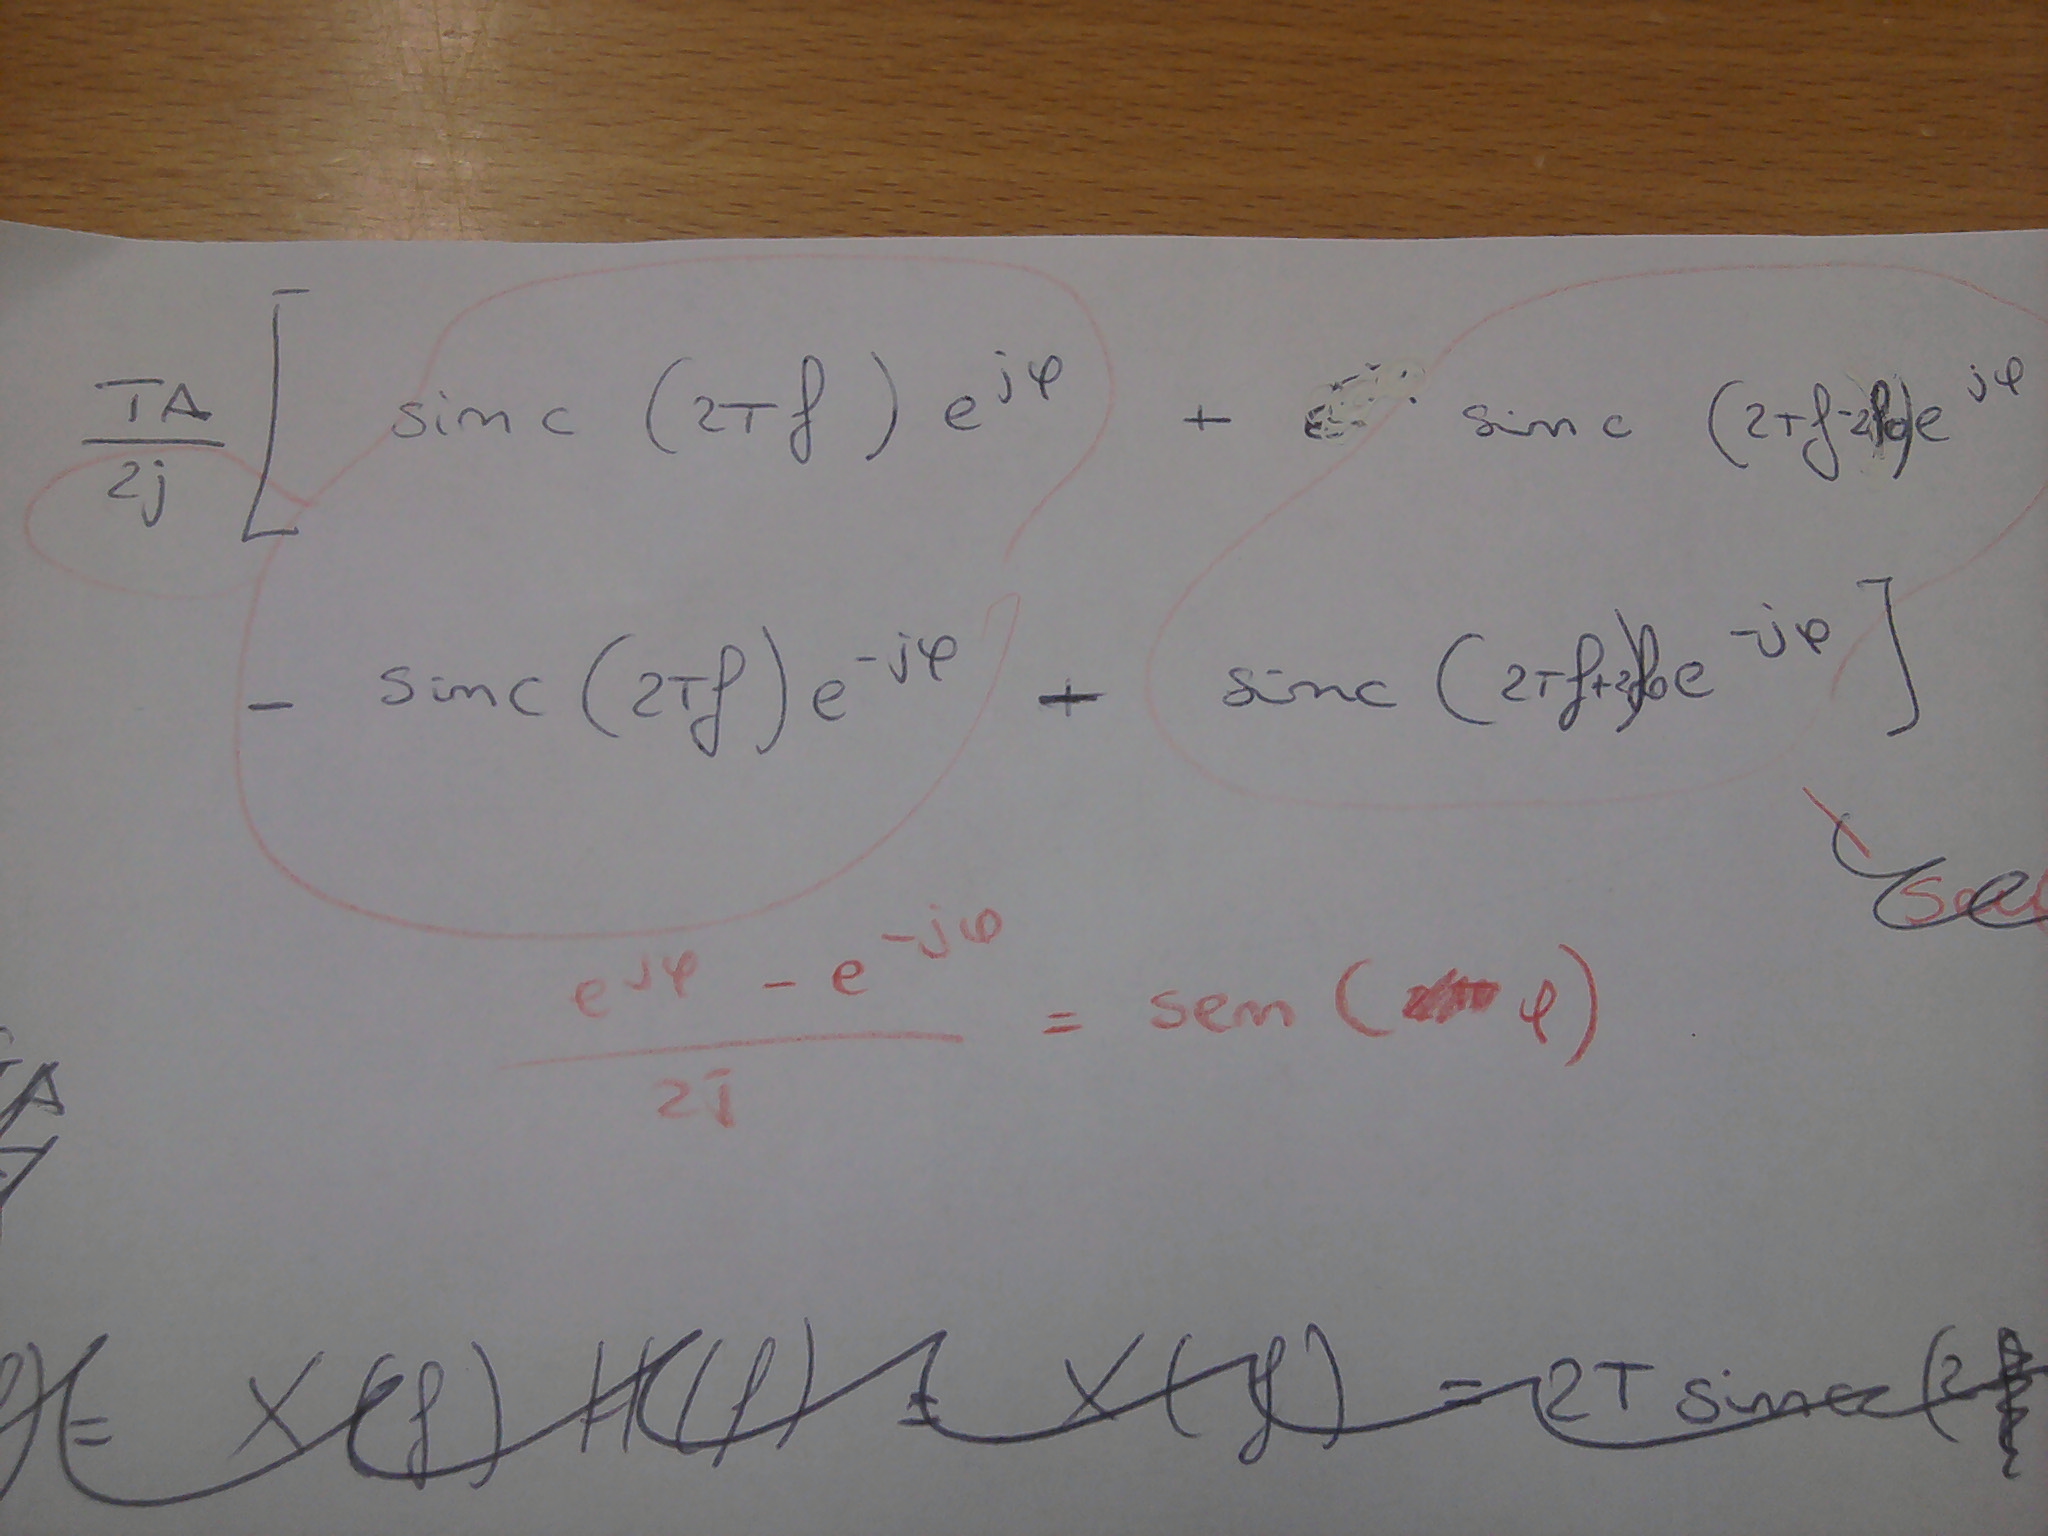 TA/2j [ sinc (2Tf) e^{jφ} + sinc (2Tf-2f₀) e^{jφ}
- sinc (2Tf) e^{-jφ} + sinc (2Tf+2f₀) e^{-jφ} ]
(e^{jφ} - e^{-jφ})/2j = sen (φ)
TA
= X(f) H(f) = X(f) = 2T sinc (2